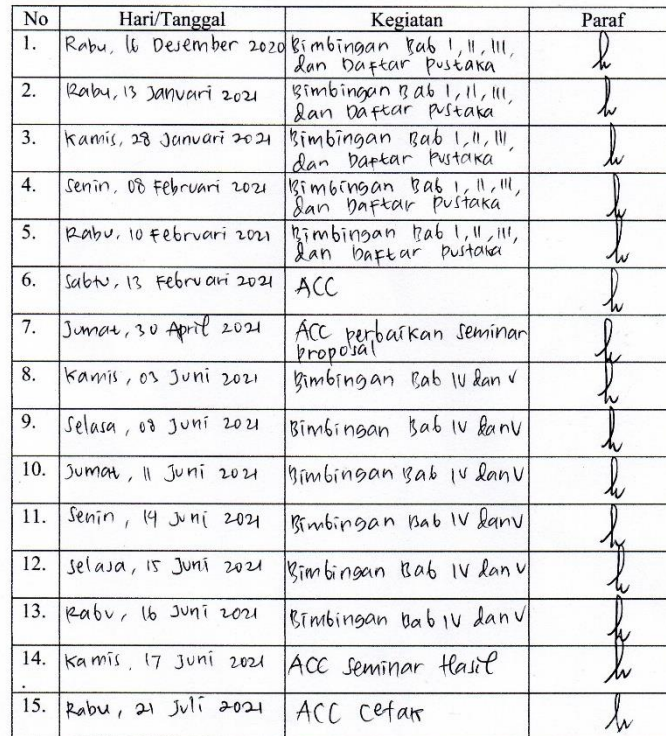 No Hari/Tanggal Kegiatan Paraf
1. Rabu, 16 Desember 2020 Bimbingan Bab I, II, III,
dan Daftar Pustaka
2. Rabu, 13 Januari 2021 Bimbingan Bab I, II, III,
dan Daftar Pustaka
3. Kamis, 28 Januari 2021 Bimbingan Bab I, II, III,
dan Daftar Pustaka
4. Senin, 08 Februari 2021 Bimbingan Bab I, II, III,
dan Daftar Pustaka
5. Rabu, 10 Februari 2021 Bimbingan Bab I, II, III,
dan Daftar Pustaka
6. Sabtu, 13 Februari 2021 ACC
7. Jumat, 30 April 2021 ACC perbaikan Seminar
proposal
8. Kamis, 03 Juni 2021 Bimbingan Bab IV dan V
9. Selasa, 08 Juni 2021 Bimbingan Bab IV dan V
10. Jumat, 11 Juni 2021 Bimbingan Bab IV dan V
11. Senin, 14 Juni 2021 Bimbingan Bab IV dan V
12. Selasa, 15 Juni 2021 Bimbingan Bab IV dan V
13. Rabu, 16 Juni 2021 Bimbingan Bab IV dan V
14. Kamis, 17 Juni 2021 ACC Seminar Hasil
15. Rabu, 21 Juli 2021 ACC Cetak